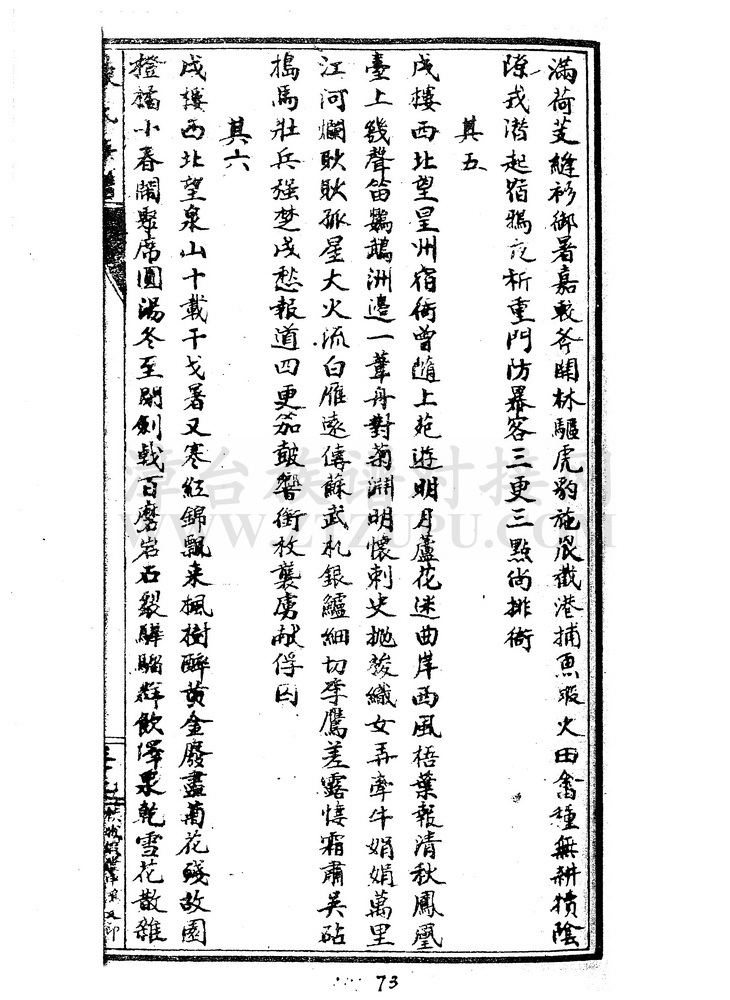 滿荷芰縫衫御暑嘉較斧開林驅虎豹施罛截港捕魚蝦火田畬種無耕犢陰
隙戎潛起宿鴉夜柝重門防暴客三更三點尚排衙
其五
戍樓西北望皇州宿衛曾隨上苑遊明月蘆花迷曲岸西風梧葉報清秋鳳凰
臺上幾聲笛鸚鵡洲邊一葦舟對菊淵明懷刺史拋梭織女弄牽牛娟娟萬里
江河爛耿耿孤星大火流白雁遠傳蘇武札銀鱸細切季鷹羞露悽霜肅吳砧
搗馬壯兵强楚戍愁報道四更笳鼓響銜枚襲虜献俘囚
其六
戍樓西北望泉山十載干戈暑又寒紅錦飄来楓樹醉黃金廢盡菊花殘故園
橙橘小春閙聚席圓湯冬至閙劍戟百磨岩石裂驊騮群飲澤泉乾雪花散雜
漳台族譜對接网
WWW.ZTZUPU.COM
73